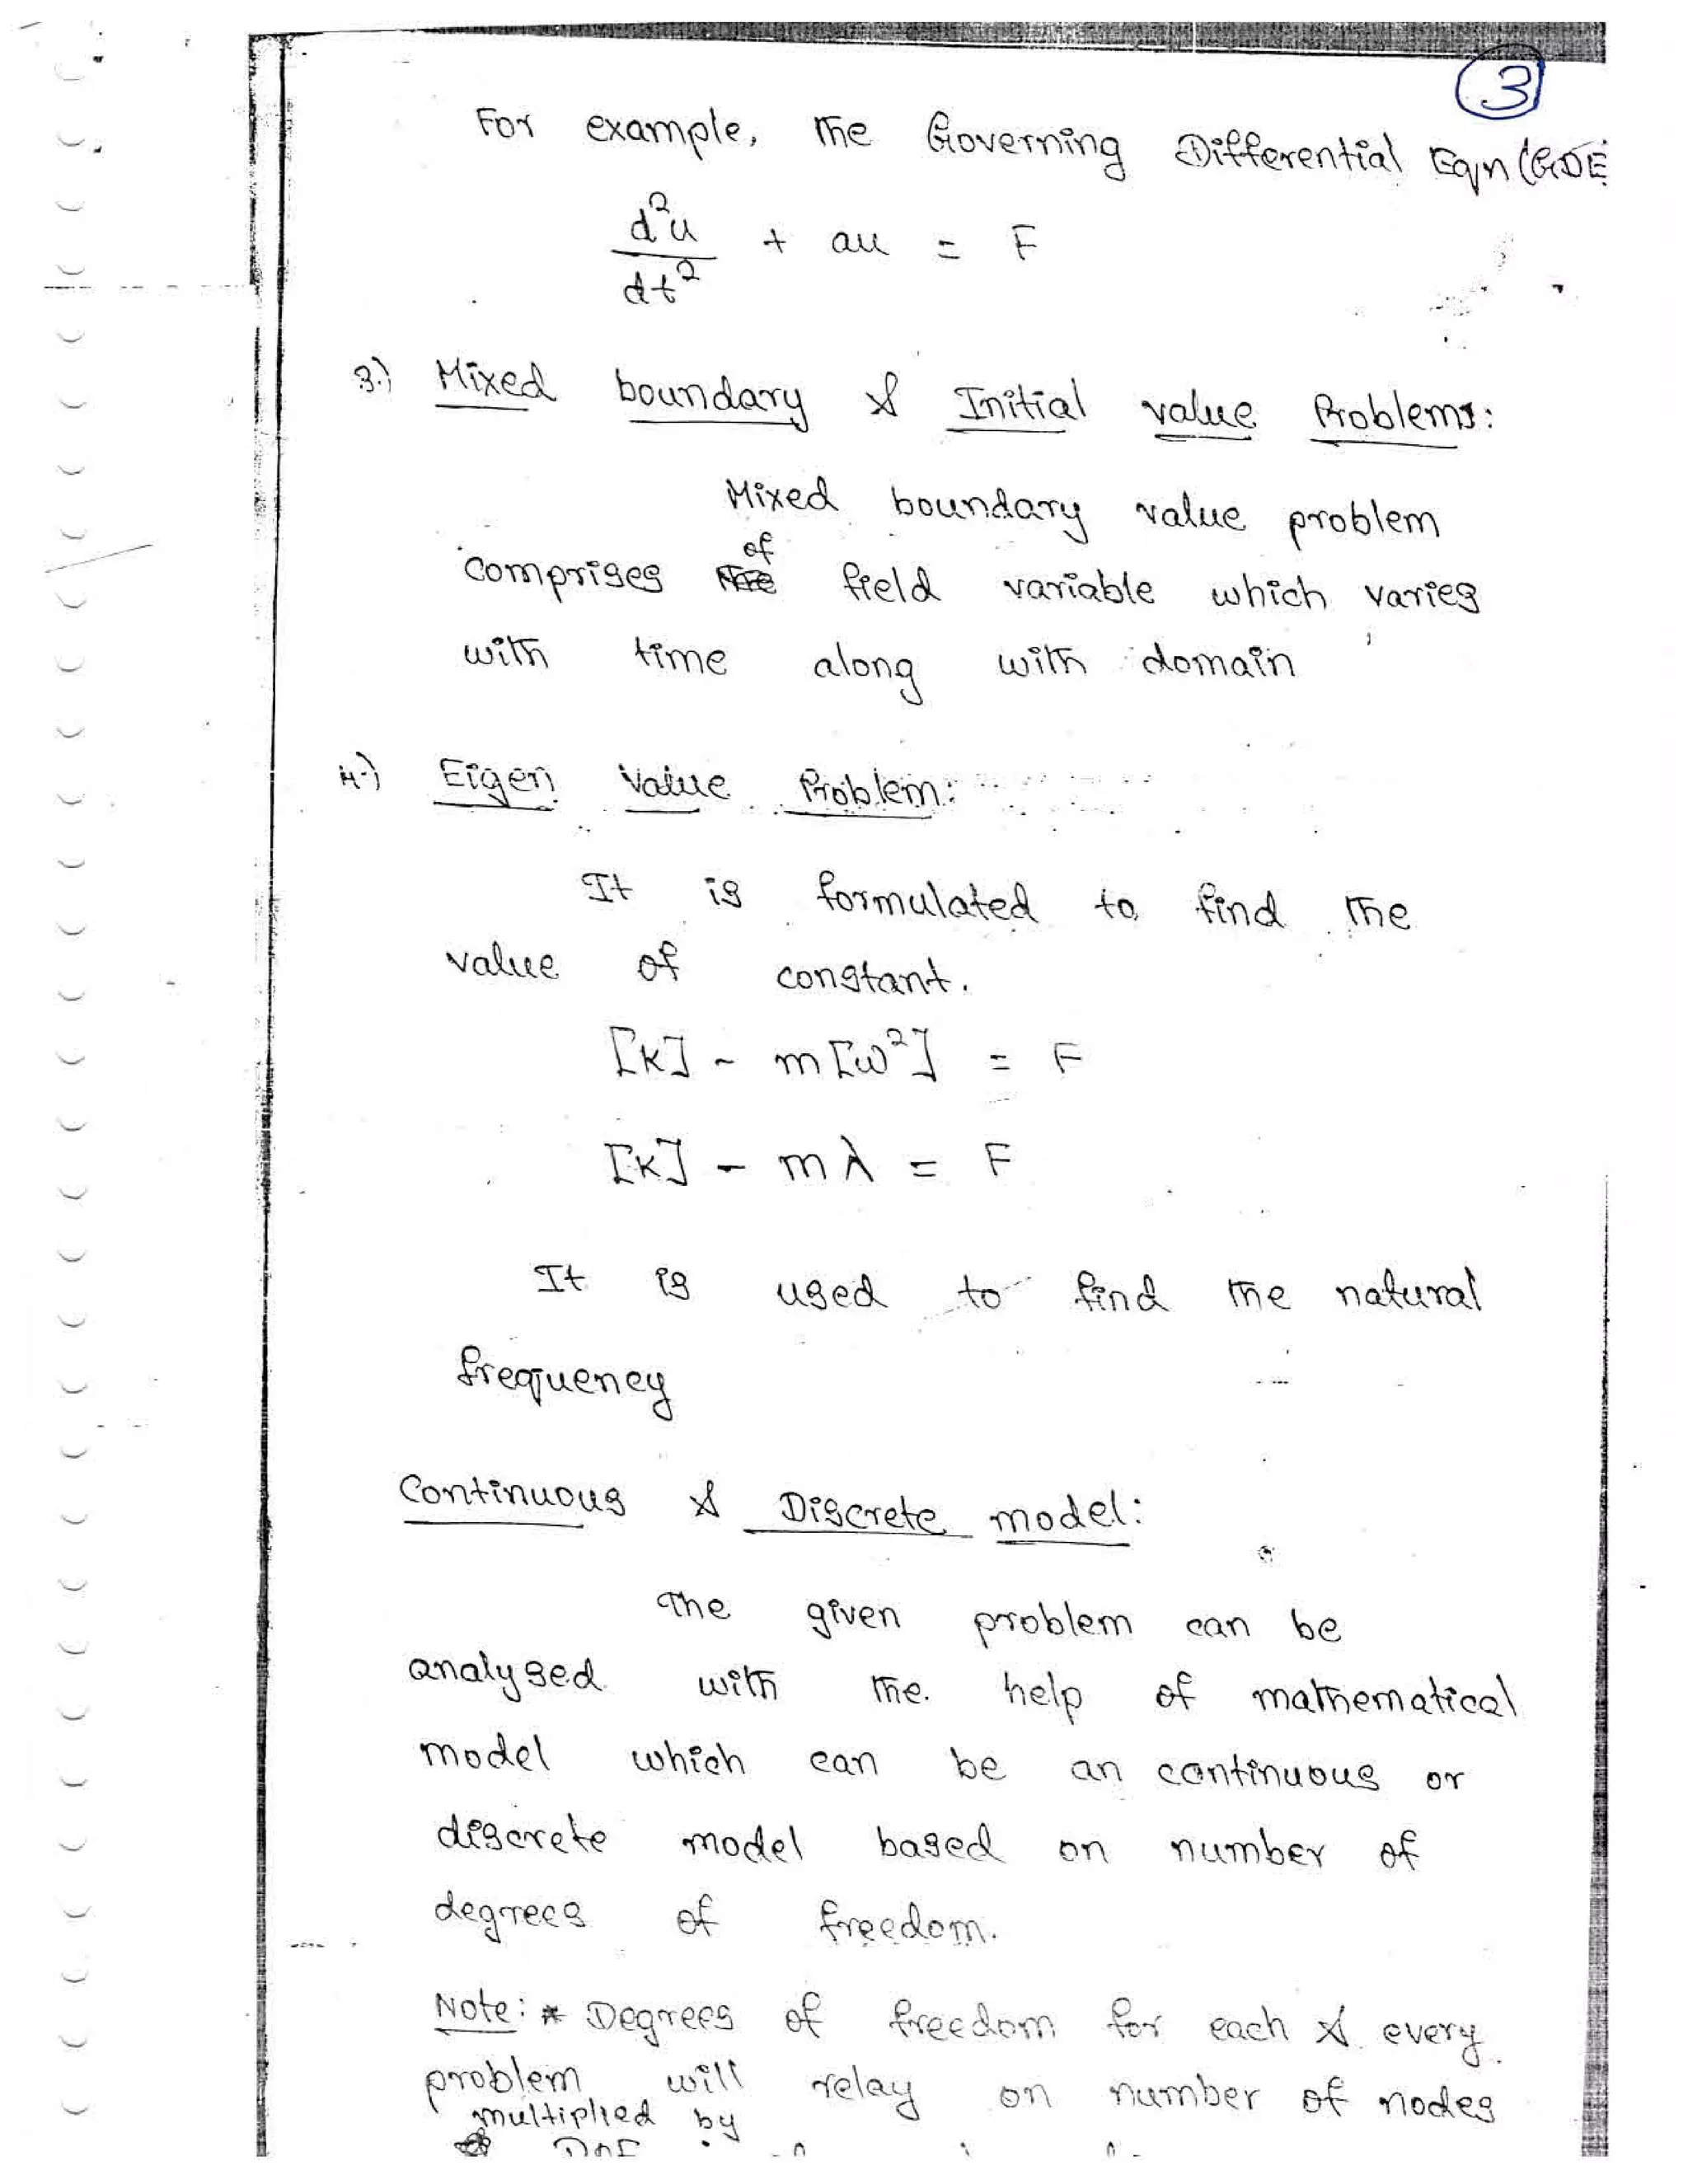 3
For example, the Governing Differential Eqn (GDE
d²u/dt² + au = F
3.) Mixed boundary & Initial value Problems:
Mixed boundary value problem
comprises of field variable which varies
with time along with domain
4.) Eigen Value Problem:
It is formulated to find the
value of constant.
[K] - m[ω²] = F
[K] - mλ = F
It is used to find the natural
frequency
Continuous & Discrete model:
The given problem can be
analysed with the help of mathematical
model which can be an continuous or
discrete model based on number of
degrees of freedom.
Note: * Degrees of freedom for each & every
problem will relay on number of nodes
multiplied by